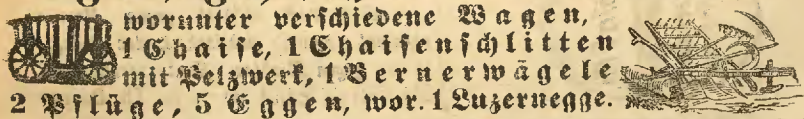 worunter verschiedene Wagen,
1 Chaise, 1 Chaisenschlitten
mit Pelzwerk, 1 Bernerwägele
2 Pflüge, 5 Eggen, wor. 1 Luzernegge.